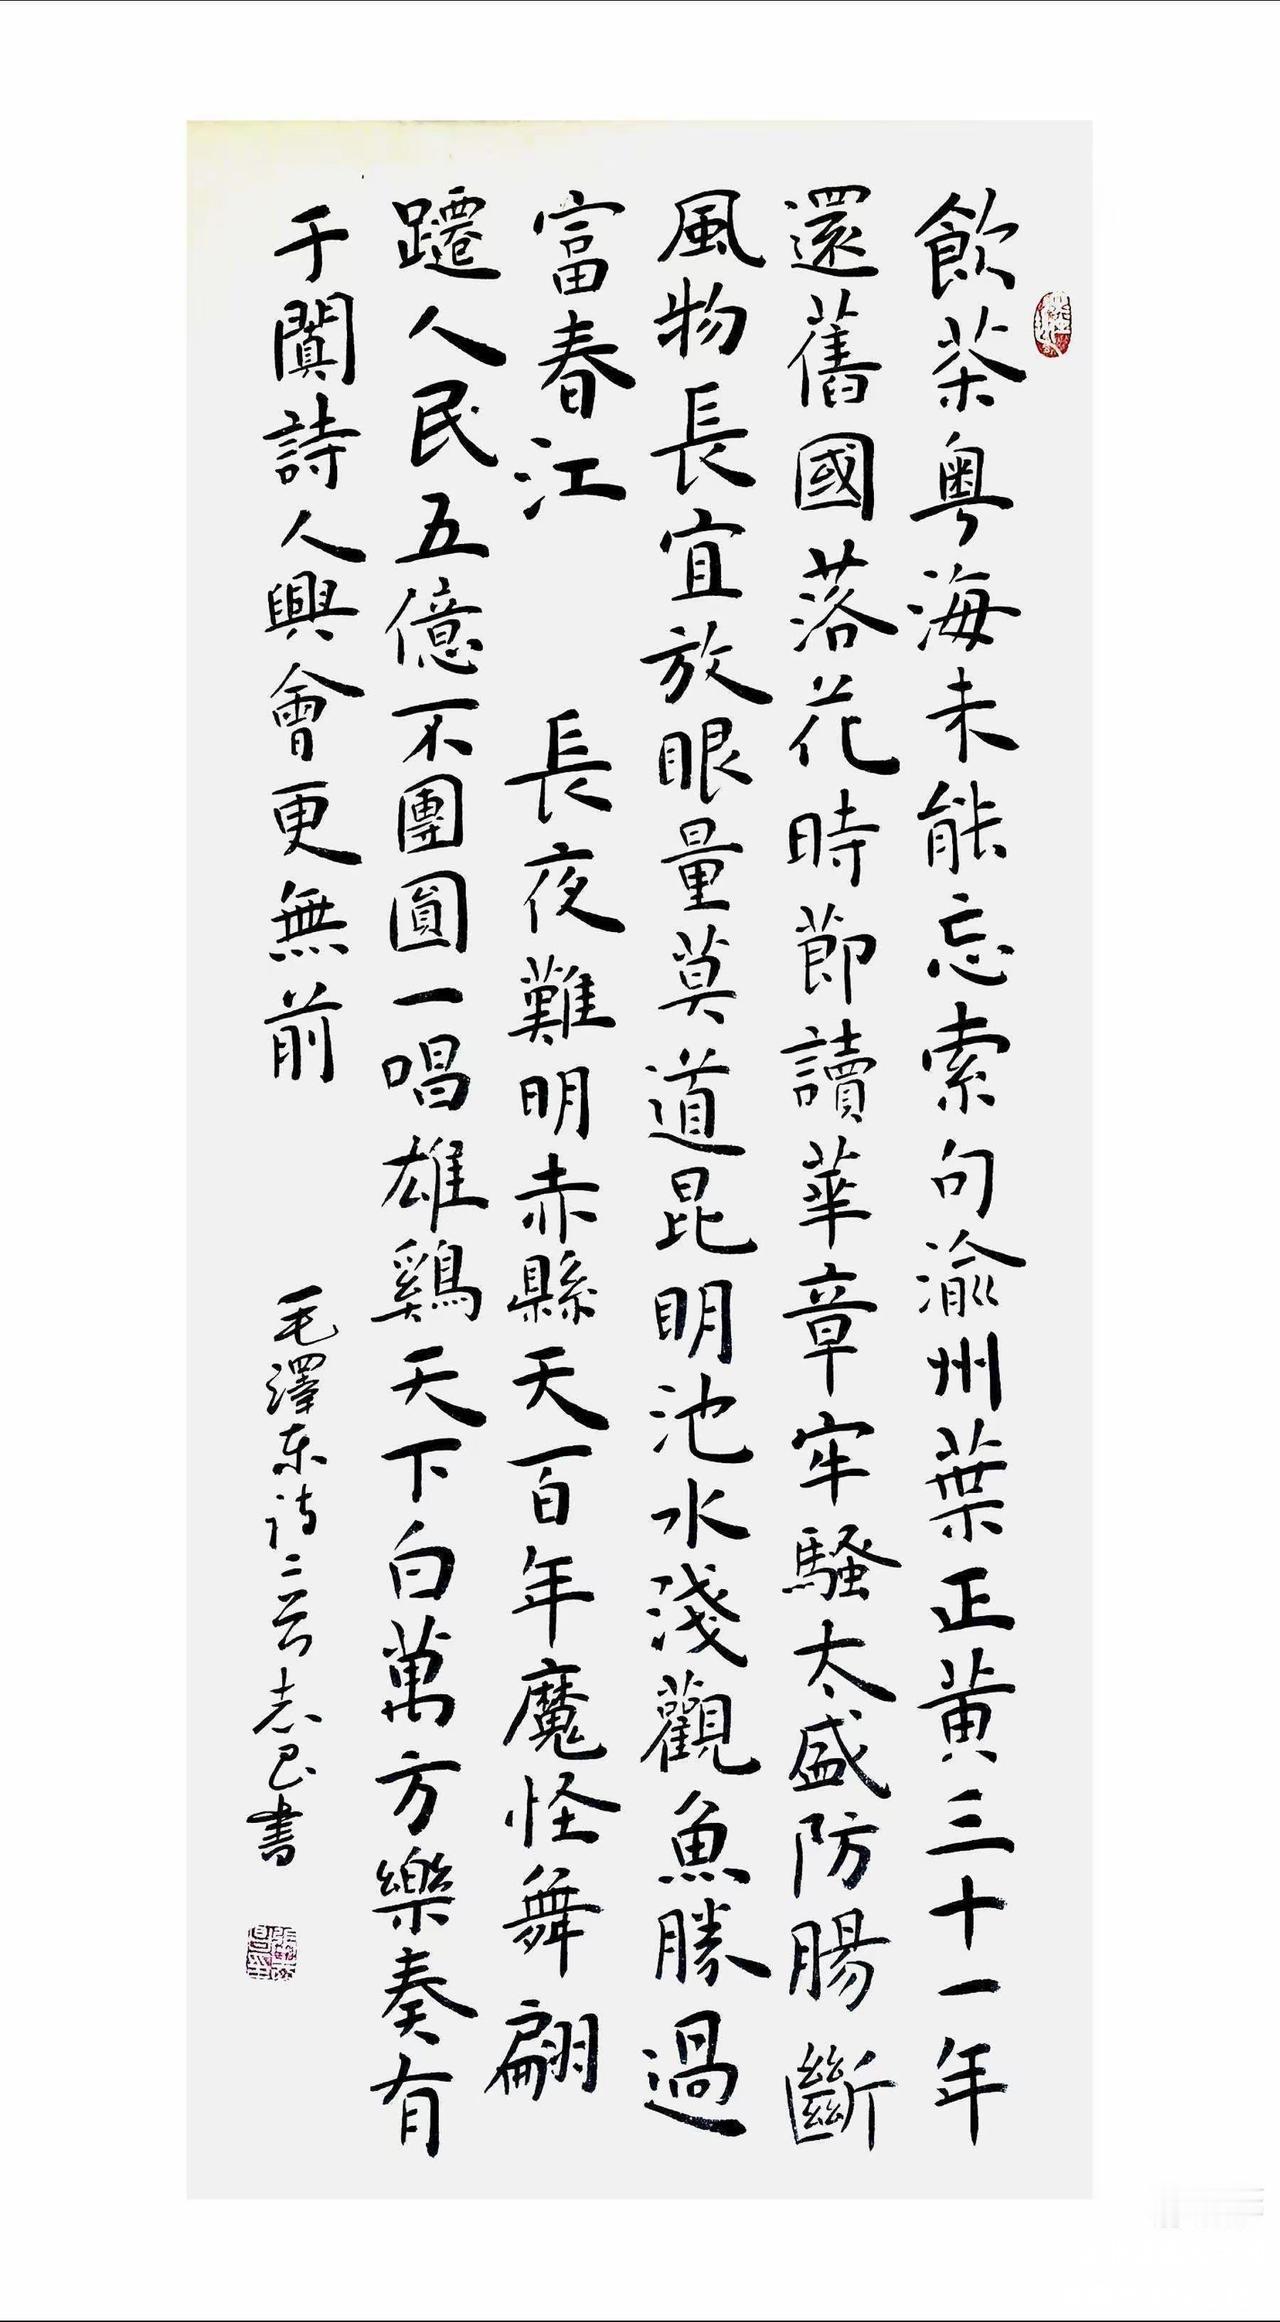 飲茶粤海未能忘索句渝州葉正黄三十一年
還舊國落花時節讀華章牢騷太盛防腸斷
風物長宜放眼量莫道昆明池水淺觀魚勝過
富春江 長夜難明赤縣天百年魔怪舞翩
躚人民五億不團圓一唱雄鷄天下白萬方樂奏有
于闐詩人興會更無前
毛澤东诗二首志昌書